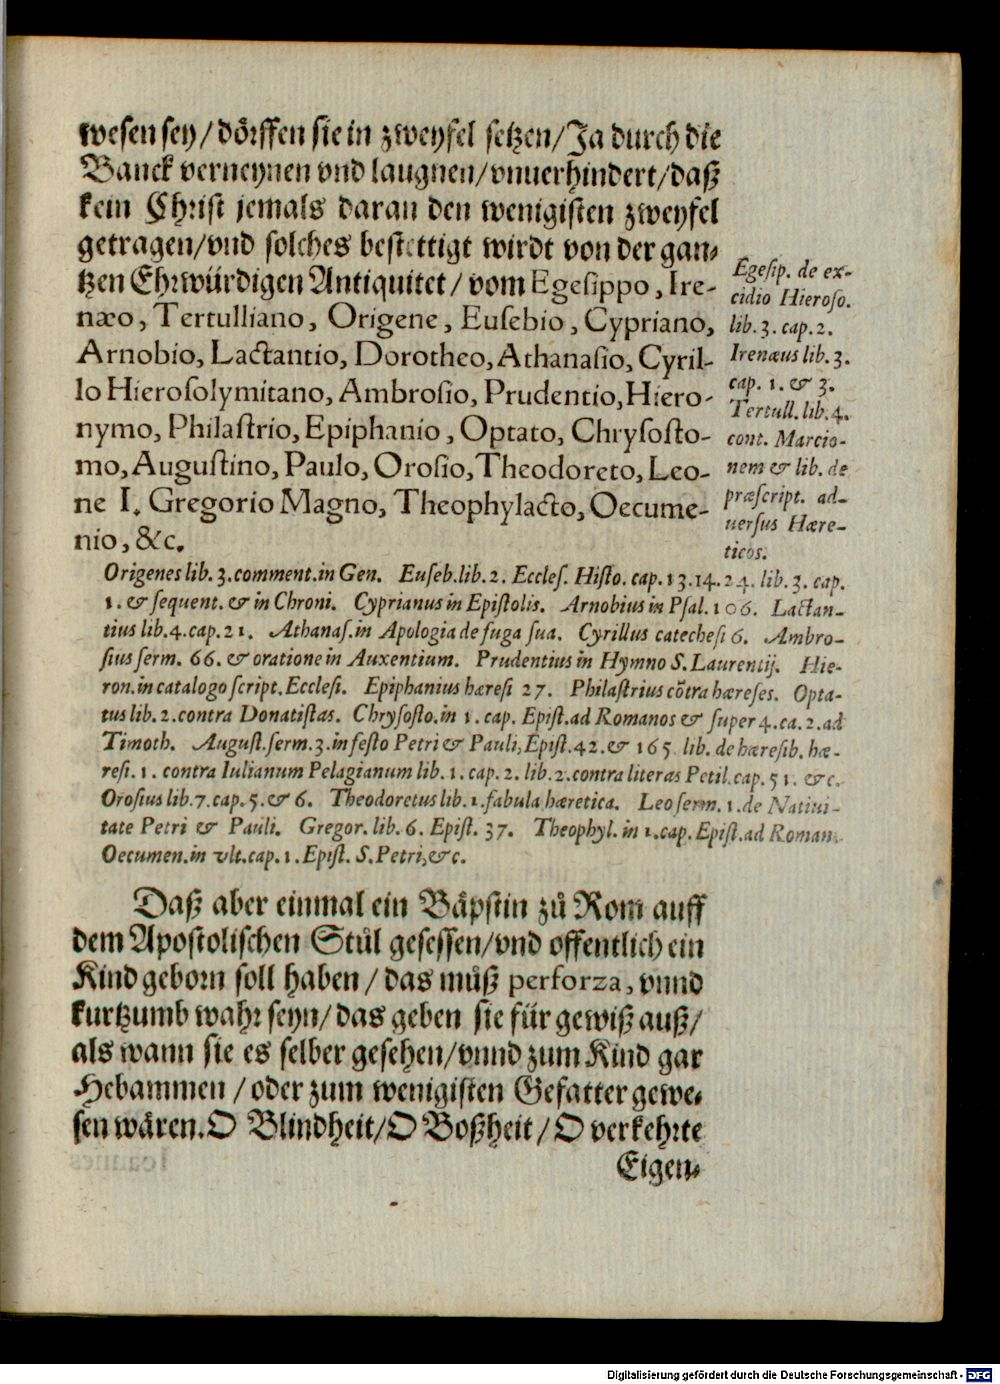 wesen sey/dörffen sie in zweyfel setzen/Ja durch die
Banck verneynen vnd laugnen/vnuerhindert/daß
kein Christ jemals daran den wenigisten zweyfel
getragen/vnd solches bestettigt wirdt von der gan-
tzen Ehrwürdigen Antiquitet/vom Egesippo, Ire-
næo, Tertulliano, Origene, Eusebio, Cypriano,
Arnobio, Lactantio, Dorotheo, Athanasio, Cyril-
lo Hierosolymitano, Ambrosio, Prudentio, Hiero-
nymo, Philastrio, Epiphanio, Optato, Chrysosto-
mo, Augustino, Paulo, Orosio, Theodoreto, Leo-
ne I. Gregorio Magno, Theophylacto, Oecume-
nio, &c.
Egesip. de ex-
cidio Hieroso.
lib. 3. cap. 2.
Irenæus lib. 3.
cap. 1. & 3.
Tertull. lib. 4.
cont. Marcio-
nem & lib. de
præscript. ad-
uersus Hære-
ticos.
Origenes lib. 3. comment. in Gen. Euseb. lib. 2. Eccles. Histo. cap. 13. 14. 24. lib. 3. cap.
1. & sequent. & in Chroni. Cyprianus in Epistolis. Arnobius in Psal. 106. Lactan-
tius lib. 4. cap. 21. Athanas. in Apologia de fuga sua. Cyrillus catechesi 6. Ambro-
sius serm. 66. & oratione in Auxentium. Prudentius in Hymno S. Laurentij. Hie-
ron. in catalogo script. Ecclesi. Epiphanius hæresi 27. Philastrius cõtra hæreses. Opta-
tus lib. 2. contra Donatistas. Chrysosto. in 1. cap. Epist. ad Romanos & super 4. ca. 2. ad
Timoth. August. serm. 3. in festo Petri & Pauli, Epist. 42. & 165 lib. de hæresib. hæ-
resi. 1. contra Iulianum Pelagianum lib. 1. cap. 2. lib. 2. contra literas Petil. cap. 51. &c.
Orosius lib. 7. cap. 5. & 6. Theodoretus lib. 1. fabula hæretica. Leo serm. 1. de Natiui-
tate Petri & Pauli. Gregor. lib. 6. Epist. 37. Theophyl. in 1. cap. Epist. ad Roman.
Oecumen. in vlt. cap. 1. Epist. S. Petri, &c.
Daß aber einmal ein Bäpstin zů Rom auff
dem Apostolischen Stůl gesessen/vnd offentlich ein
Kind geborn soll haben/das můß perforza, vnnd
kurtzumb wahr seyn/das geben sie für gewiß auß/
als wann sie es selber gesehen/vnnd zum Kind gar
Hebammen/oder zum wenigisten Gefatter gewe-
sen wären. O Blindheit/O Boßheit/O verkehrte
Eigen-
Digitalisierung gefördert durch die Deutsche Forschungsgemeinschaft - DFG